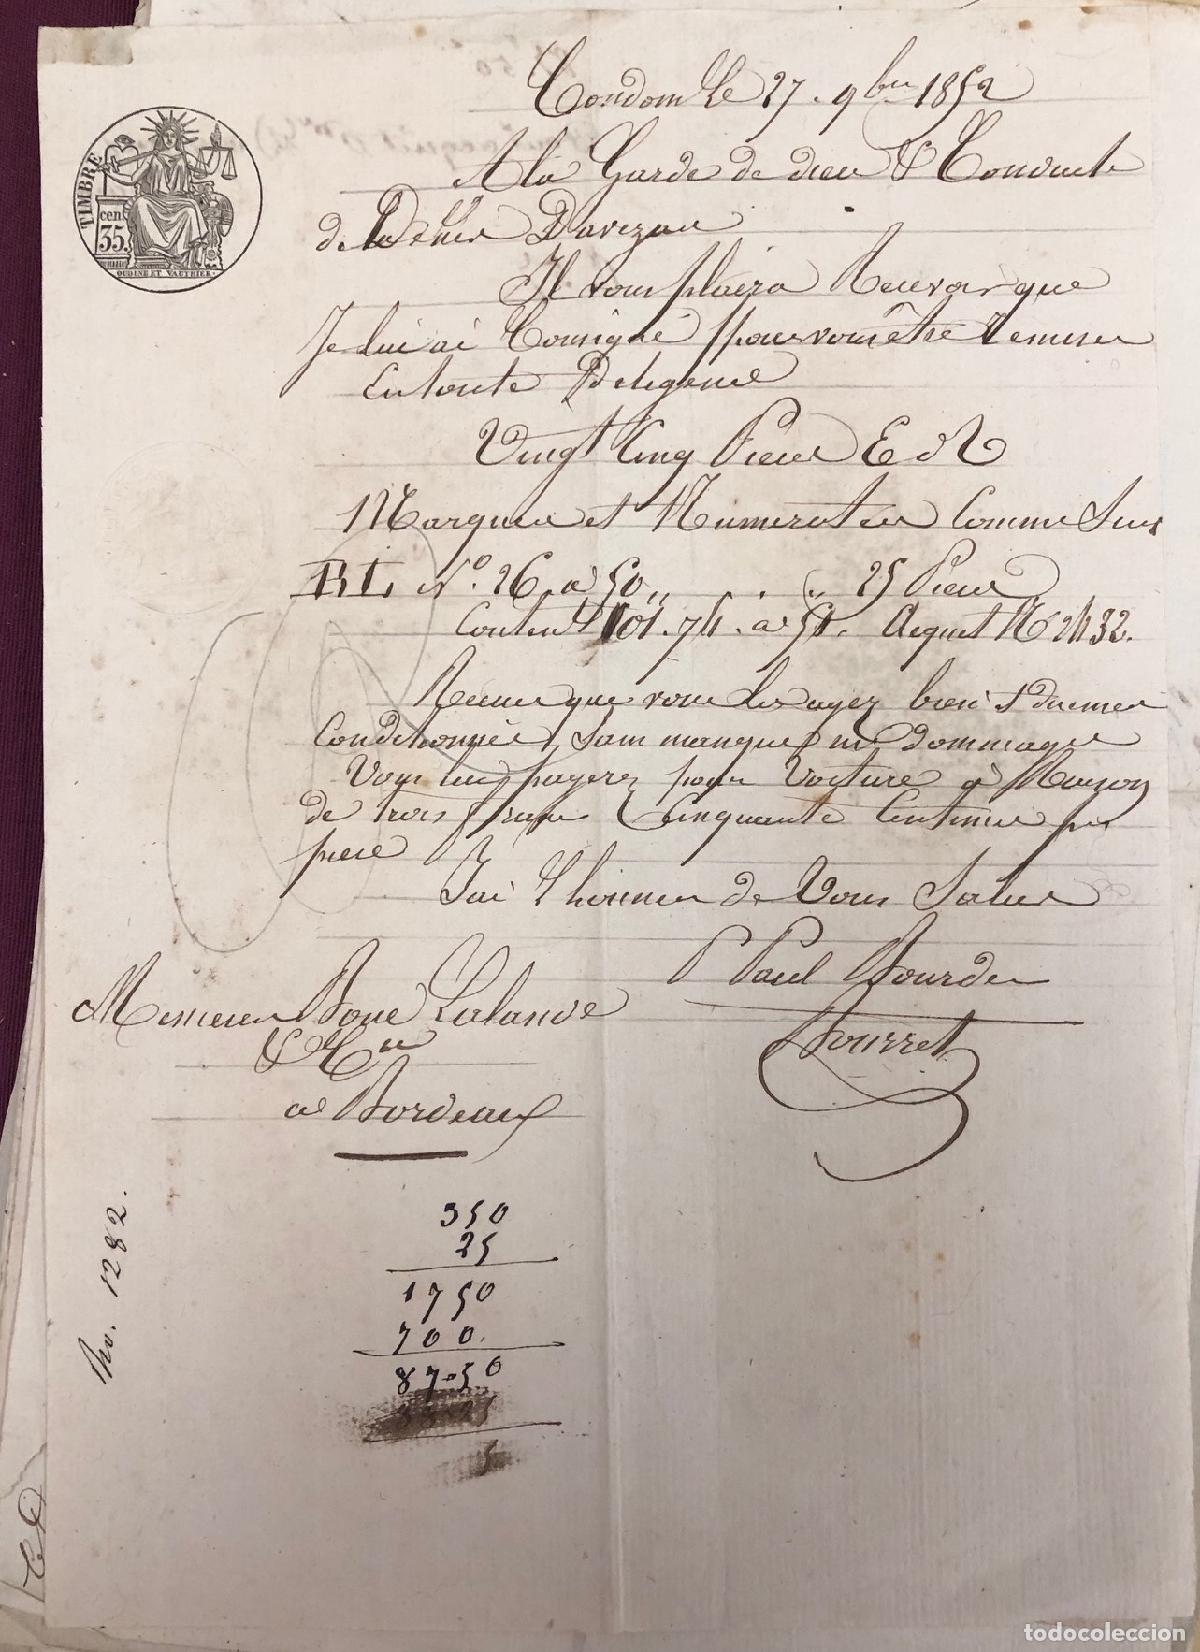 Condom Le 27 9bre 1852
TIMBRE
cen
35
OUDINE ET VAUTHIER
A la Garde de dieu & Conduite
de Davezac
Il vous plaira Recevoir que
Je lui ai Consigné pour vous être Remises
En toute Deligence
Vingt Cinq Pieces E d N
Marquees et Numerotees Comme Suis
BL N° 26 a 50 ,, . ,, 25 Pieces
Conten 101.74 a 51. Acquit N 2432.
Recues que vous les ayez bien & duemen
Conditionnées, sans manque ni dommage
Vous lui payerez pour Voiture a Raison
de trois francs Cinquante Centimes par
piece
Jai L honneur de Vous Saluer
P Paul Bourde
Messieurs Boue Lalande
& Cie
a Bordeaux
350
25
1750
700.
87-50
5
1282.
todocoleccion